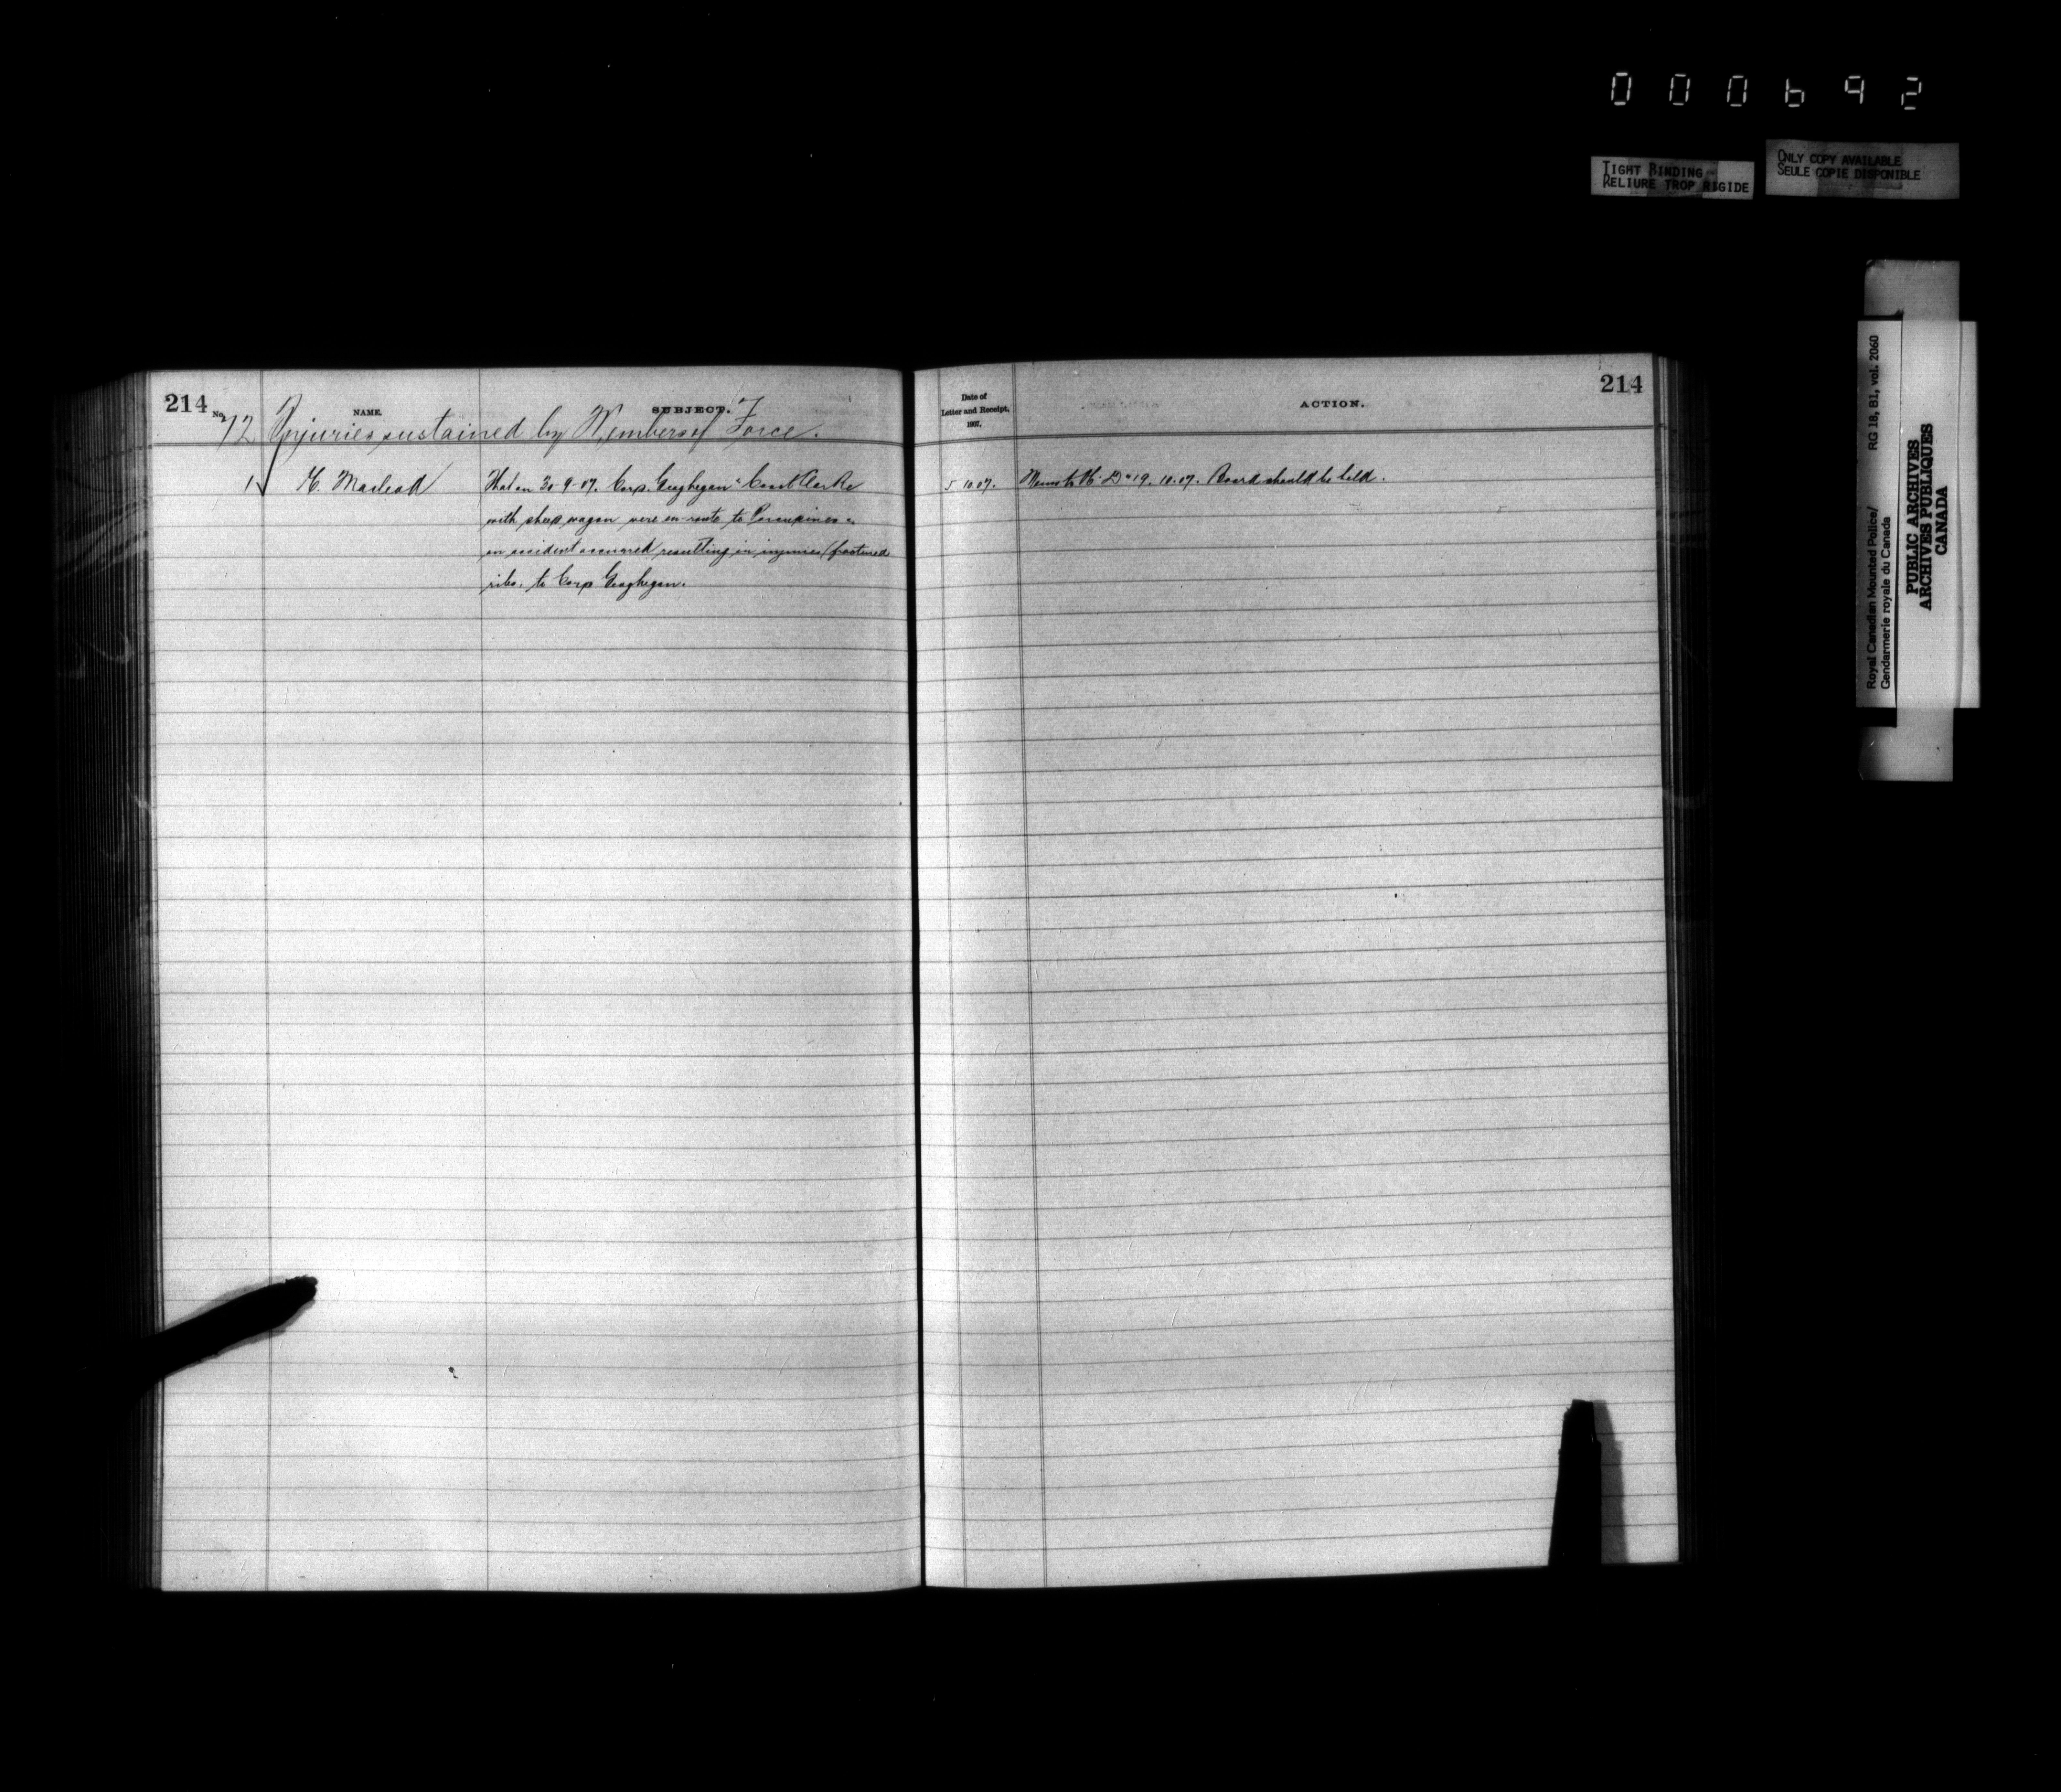 000692
TIGHT BINDING
RELIURE TROP RIGIDE
ONLY COPY AVAILABLE
SEULE COPIE DISPONIBLE
Royal Canadian Mounted Police/ RG 18, B1, vol. 2060
Gendarmerie royale du Canada
PUBLIC ARCHIVES
ARCHIVES PUBLIQUES
CANADA
214 No. NAME. SUBJECT.
72 Injuries sustained by Members of Force.
1 Macleod That on 30-9-07. Corp. Geoghegan & Const Clarke
with sheep wagon were en-route to Porcupines
an accident occurred resulting in injuries (fractured
ribs. to Corp Geoghegan.
Date of
Letter and Receipt,
1907.
ACTION.
214
5 10.07. Memo to 19.10.07. Board should be held.